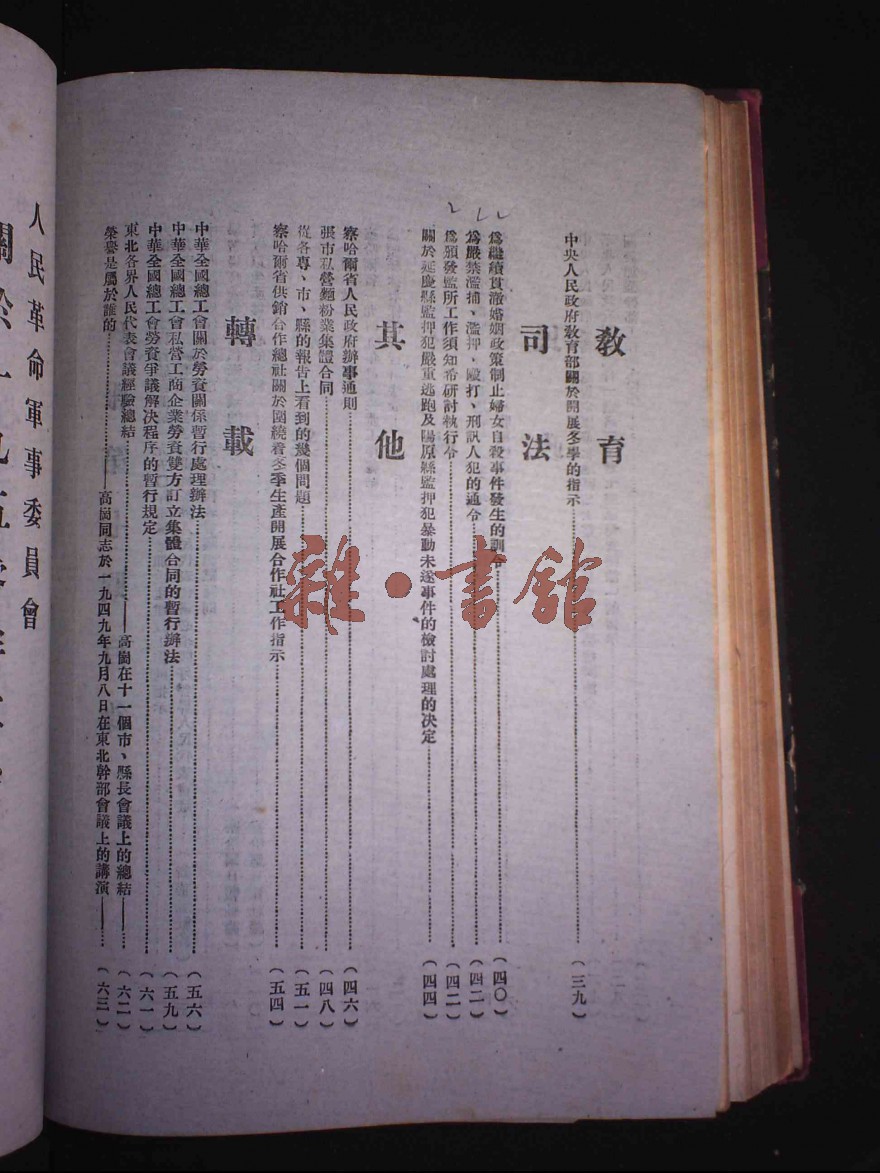 教育
中央人民政府教育部關於開展冬學的指示(三九)
司法
爲繼續貫澈婚姻政策制止婦女自殺事件發生的訓令(四〇)
爲嚴禁濫捕、濫押、毆打、刑訊人犯的通令(四二)
爲頒發監所工作須知希研討執行令(四二)
關於延慶縣監押犯嚴重逃跑及陽原縣監押犯暴動未遂事件的檢討處理的決定(四四)
其他
察哈爾省人民政府辦事通則(四六)
張市私營麵粉業集體合同(四八)
從各專、市、縣的報告上看到的幾個問題(五一)
察哈爾省供銷合作總社關於圍繞着冬季生產開展合作社工作指示(五四)
轉載
中華全國總工會關於勞資關係暫行處理辦法(五六)
中華全國總工會私營工商企業勞資雙方訂立集體合同的暫行辦法(五九)
中華全國總工會勞資爭議解決程序的暫行規定(六一)
東北各界人民代表會議經驗總結——高崗在十一個市、縣長會議上的總結——(六二)
榮譽是屬於誰的——高崗同志於一九四九年九月八日在東北幹部會議上的講演——(六三)
人民革命軍事委員會
雜·書館